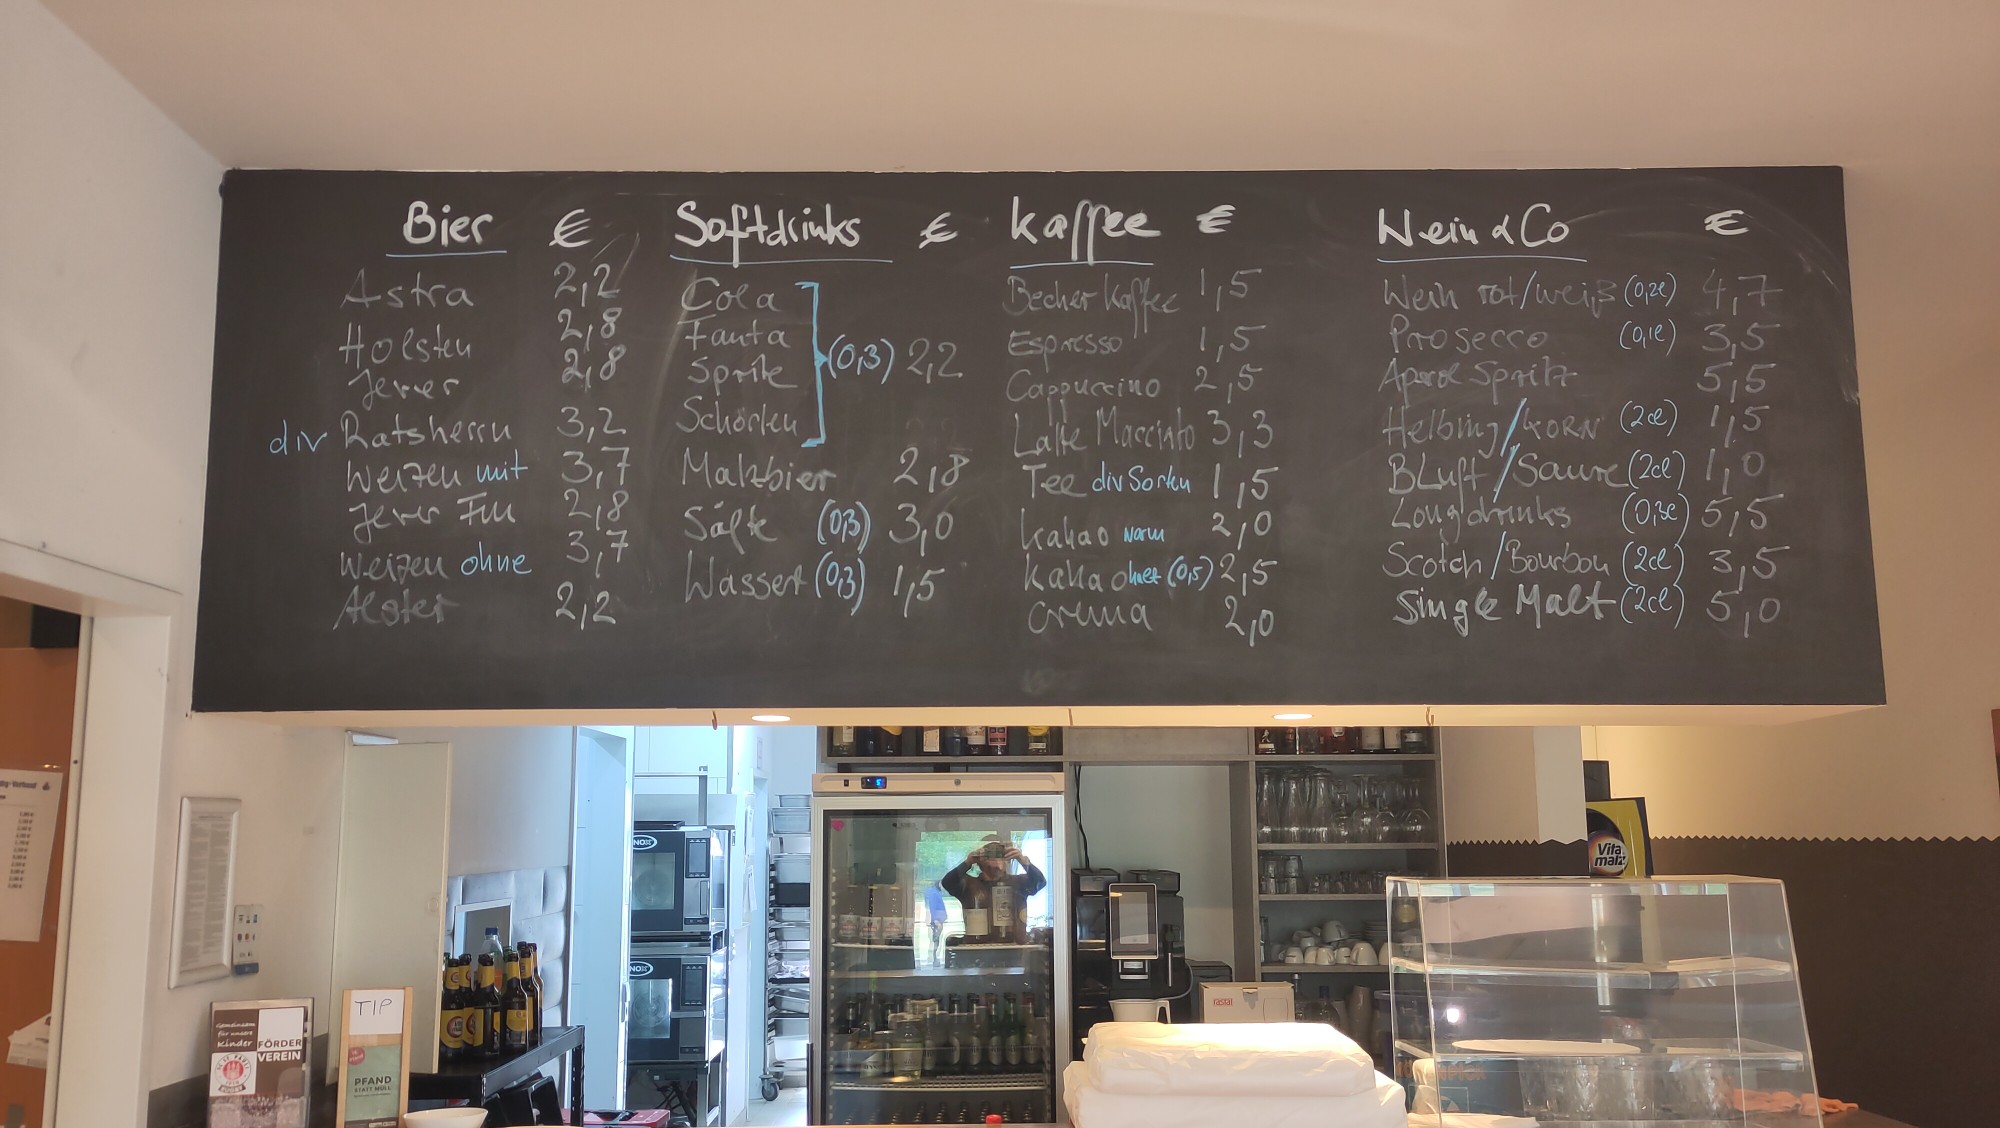 Bier €
Astra 2,2
Holsten 2,8
Jever 2,8
div Ratsherrn 3,2
Weizen mit 3,7
Jever Fun 2,8
Weizen ohne 3,7
Alster 2,2
Softdrinks €
Cola
Fanta
Sprite
Schorlen
(0,3) 2,2
Malzbier 2,8
Säfte (0,3) 3,0
Wasser (0,3) 1,5
Kaffee €
Becher Kaffee 1,5
Espresso 1,5
Cappuccino 2,5
Latte Macciato 3,3
Tee div Sorten 1,5
Kakao warm 2,0
Kakao kalt (0,5) 2,5
Crema 2,0
Wein & Co €
Wein rot/weiß (0,2l) 4,7
Prosecco (0,1l) 3,5
Aperol Spritz 5,5
Helbing/KORN (2cl) 1,5
BLuft/Saure (2cl) 1,0
Longdrinks (0,3l) 5,5
Scotch/Bourbon (2cl) 3,5
Single Malt (2cl) 5,0
Vita
malz
NOX
NOX
rastal
TIP
PFAND
STATT MÜLL
Gemeinsam
für unsere
Kinder
FÖRDER
VEREIN